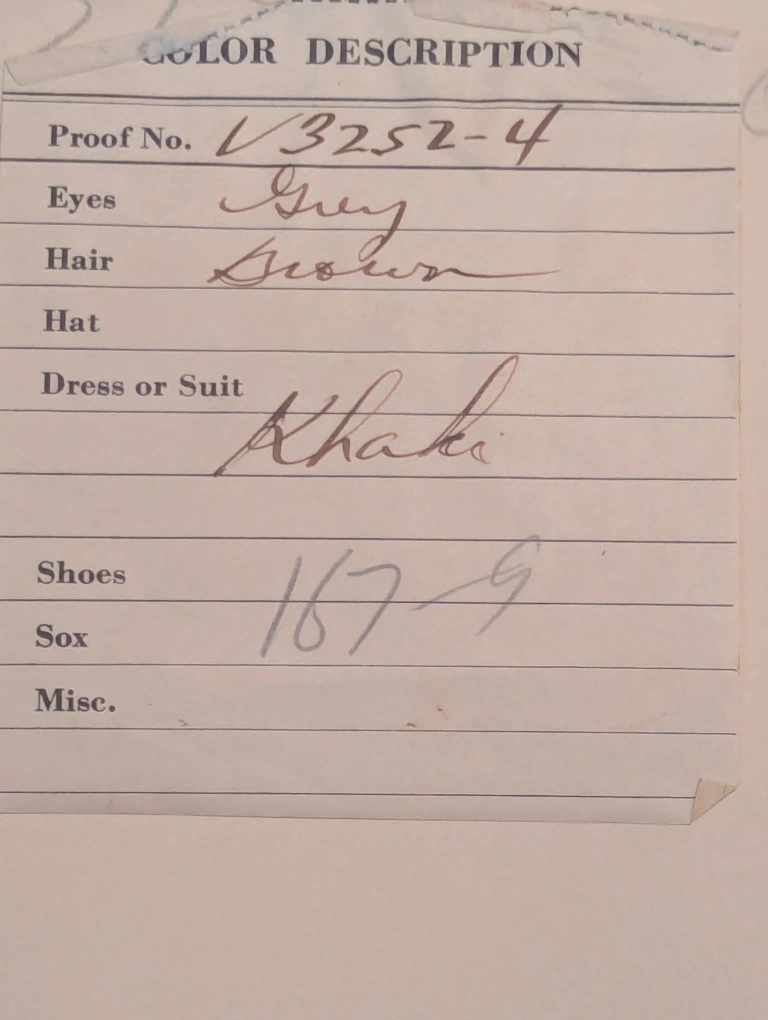 COLOR DESCRIPTION
Proof No. V3252-4
Eyes Grey
Hair Brown
Hat
Dress or Suit
Khaki
Shoes
167-9
Sox
Misc.